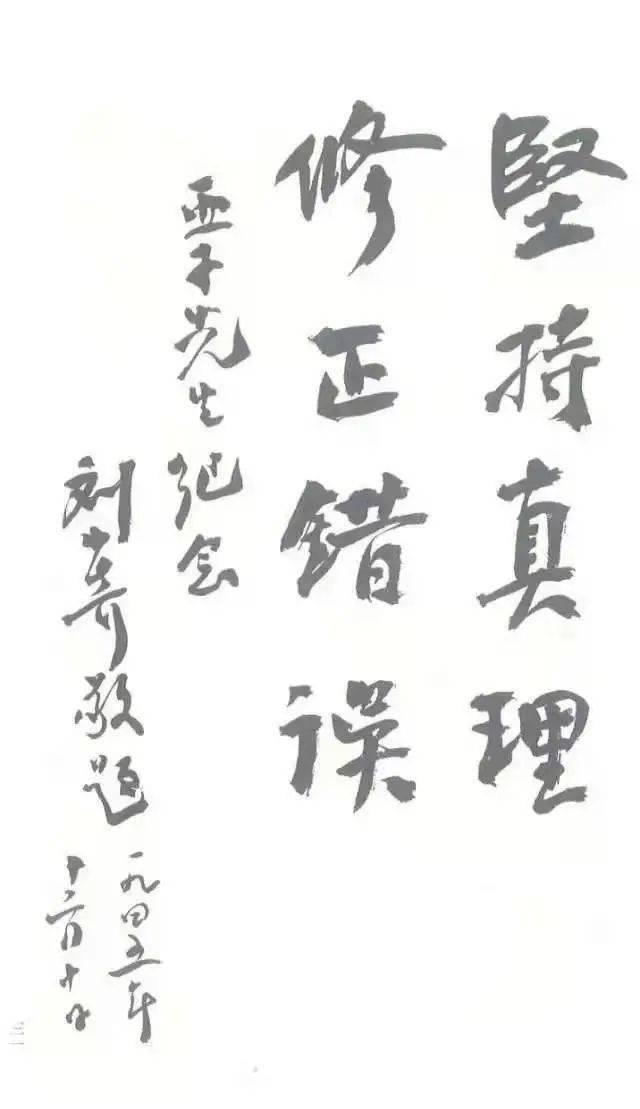 堅持真理
修正錯誤
亞子先生纪念
刘少奇敬题
一九四五年
十二月日